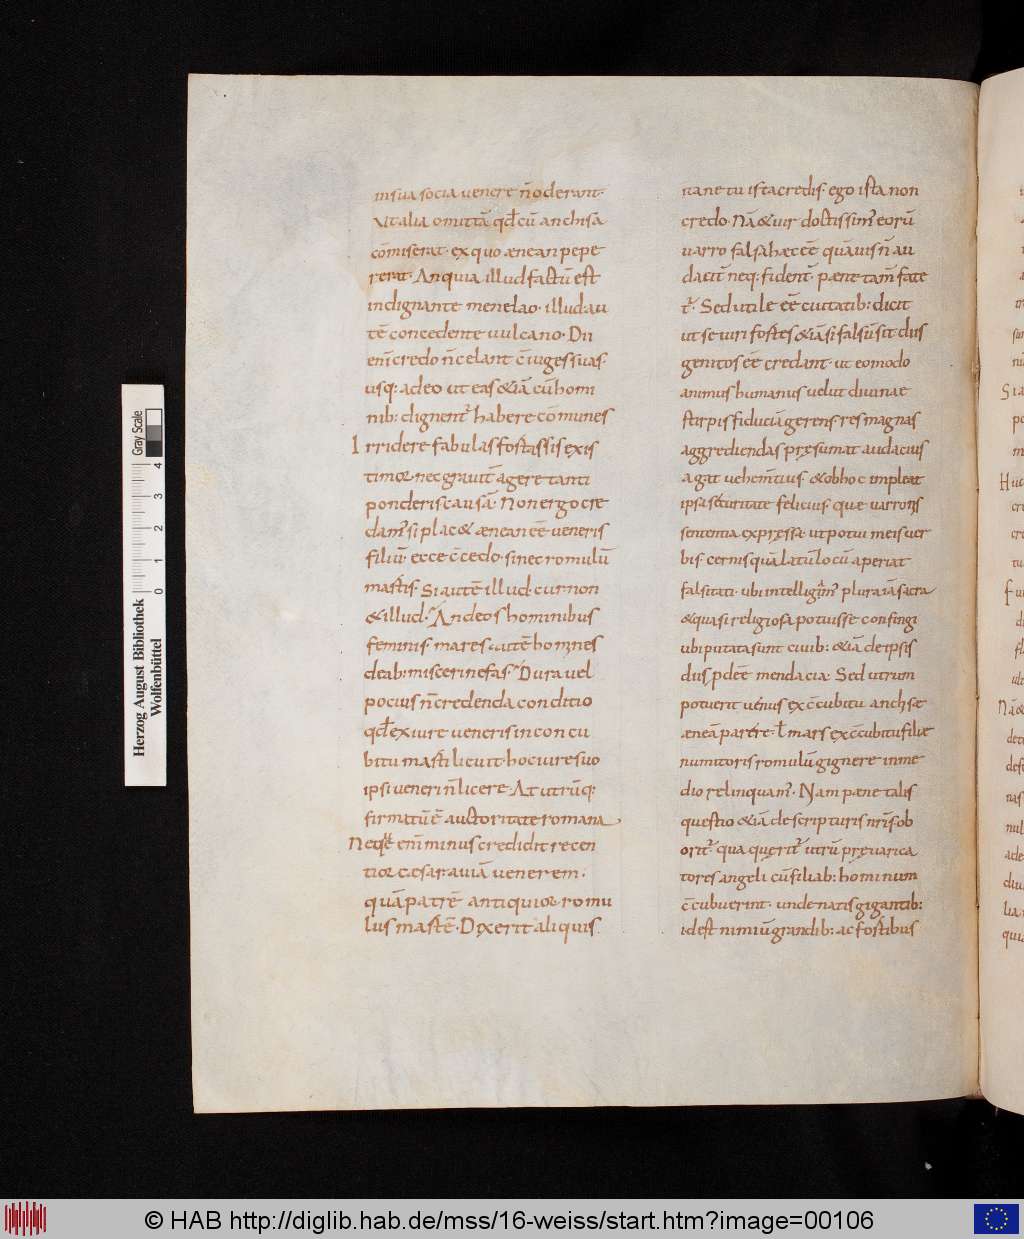 insua socia uenere n̄ oderant·
At alia omittā qđ cū anchisa
cōmiserat· ex quo ænean pepe
rerat· An quia illud factū est
indignante menelao· illud au
tē concedente uulcano· Dii
enī credo n̄ celant c̄iuges suas·
usq: adeo ut eas &iā cū homi
nib: dignent̄ habere cōmunes
Irridere fabulas fortassis exis
timor nec grauit̄ agere tanti
ponderis causā· Non ergo cre
dam' si plac& ænean ēē ueneris
filiū· ecce c̄cedo· si nec romulū
martis· Si autē illud· cur non
&illud· An deos hominibus
feminis· mares autē homines
deab: misceri nefas· Dura uel
pocius n̄ credenda conditio
qđ ex iure ueneris in concu
bitu marti licuit· hoc iure suo
ipsi ueneri n̄ licere· At utrūq:
firmatū ē auctoritate romana
Neq: enī minus credidit recen
tior cęsar auiā uenerem·
quā patrē antiquior romu
lus martē· Dixerit aliquis
tane tu ista credis· ego ista non
credo· Nā &uir doctissim' eorū
uarro falsa hæc ēē quāuis n̄ au
dacit̄ neq: fident̄· pæne tam̄ fate
t̄· Sed utile ēē ciuitatib: dicit
ut se uiri fortes &iāsi falsū sit diis
genitos ēē credant· ut eo modo
animus humanus uelut diuinae
stirpis fiduciā gerens res magnas
aggrediendas pręsumat audacius
agat uehem̄tius &ob hoc impleat
ipsa securitate felicius· quæ uarronis
sententia expręssa· ut potui meis uer
bis· cernis quā latū locū aperiat
falsitati· ubi intelligam' plura iā sacra
&quasi religiosa potuisse confingi
ubi putata sunt ciuib: &iā de ipsis
diis pdēē mendacia· Sed utrum
potuerit uenus ex c̄cubitu anchisæ
æneā parere· ł mars ex c̄cubitu filiæ
numitoris romulū gignere in me
dio relinquam'· Nam pæne talis
questio &iā de scripturis nr̄is ob
orit̄· qua querit̄ utrū pręuarica
tores angeli cū filiab: hominum
c̄cubuerint· unde natis gigantib:
id est nimiū grandib: ac fortibus
Gray Scale
0 1 2 3 4
Herzog August Bibliothek
Wolfenbüttel
© HAB http://diglib.hab.de/mss/16-weiss/start.htm?image=00106